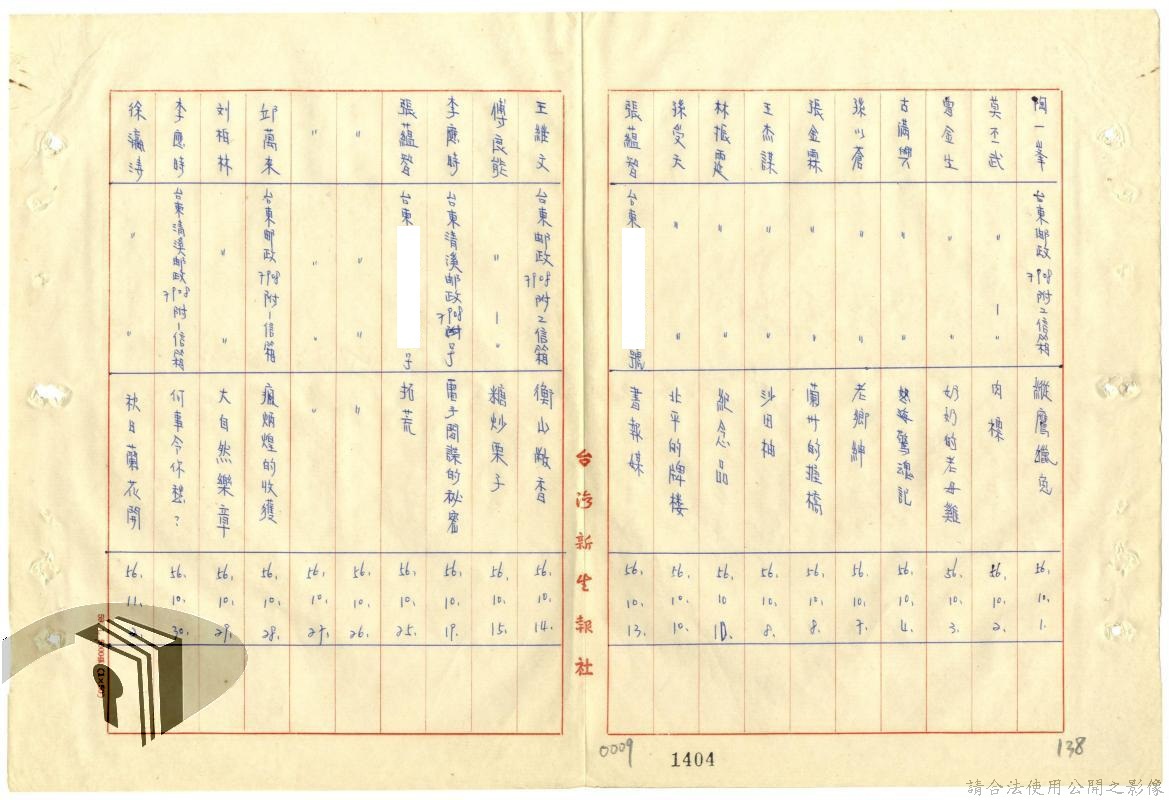 陶一峯 台東邮政7908附2信箱 縱鷹獵兔 56. 10. 1.
莫丕武 〃 1 〃 肉襟 56. 10. 2.
曾金生 〃 〃 奶奶的老母雞 56. 10. 3.
古滿興 〃 〃 驚魂記 56. 10 4.
孫以蒼 〃 〃 老鄉紳 56. 10. 7.
張金霖 〃 〃 蘭州的握橋 56. 10. 8.
王杰謀 〃 〃 沙田柚 56. 10 8.
林振霆 〃 〃 紀念品 56. 10 10.
孫受天 〃 〃 北平的牌楼 56. 10. 10.
張蘊智 台東 號 書報媒 56. 10. 13.
台灣新生報社
王維文 台東邮政7908附2信箱 衡山散香 56. 10. 14.
傅良能 〃 1 〃 糖炒栗子 56. 10. 15.
李應時 台東清溪邮政7908附号 電子間諜的秘密 56. 10. 19.
張蘊智 台東 号 拓荒 56. 10. 25.
〃 〃 〃 〃 56. 10. 26.
〃 〃 〃 〃 56. 10. 27.
邱萬來 台東邮政7908附1信箱 瘋炳煌的收獲 56. 10. 28.
刘柏林 〃 〃 大自然樂章 56. 10. 29.
李應時 台東清溪邮政7908附1信箱 何事令你愁？ 56. 10. 30.
徐瀛濤 〃 〃 秋日蘭花開 56. 11. 2.
0009
1404
138
請合法使用公開之影像